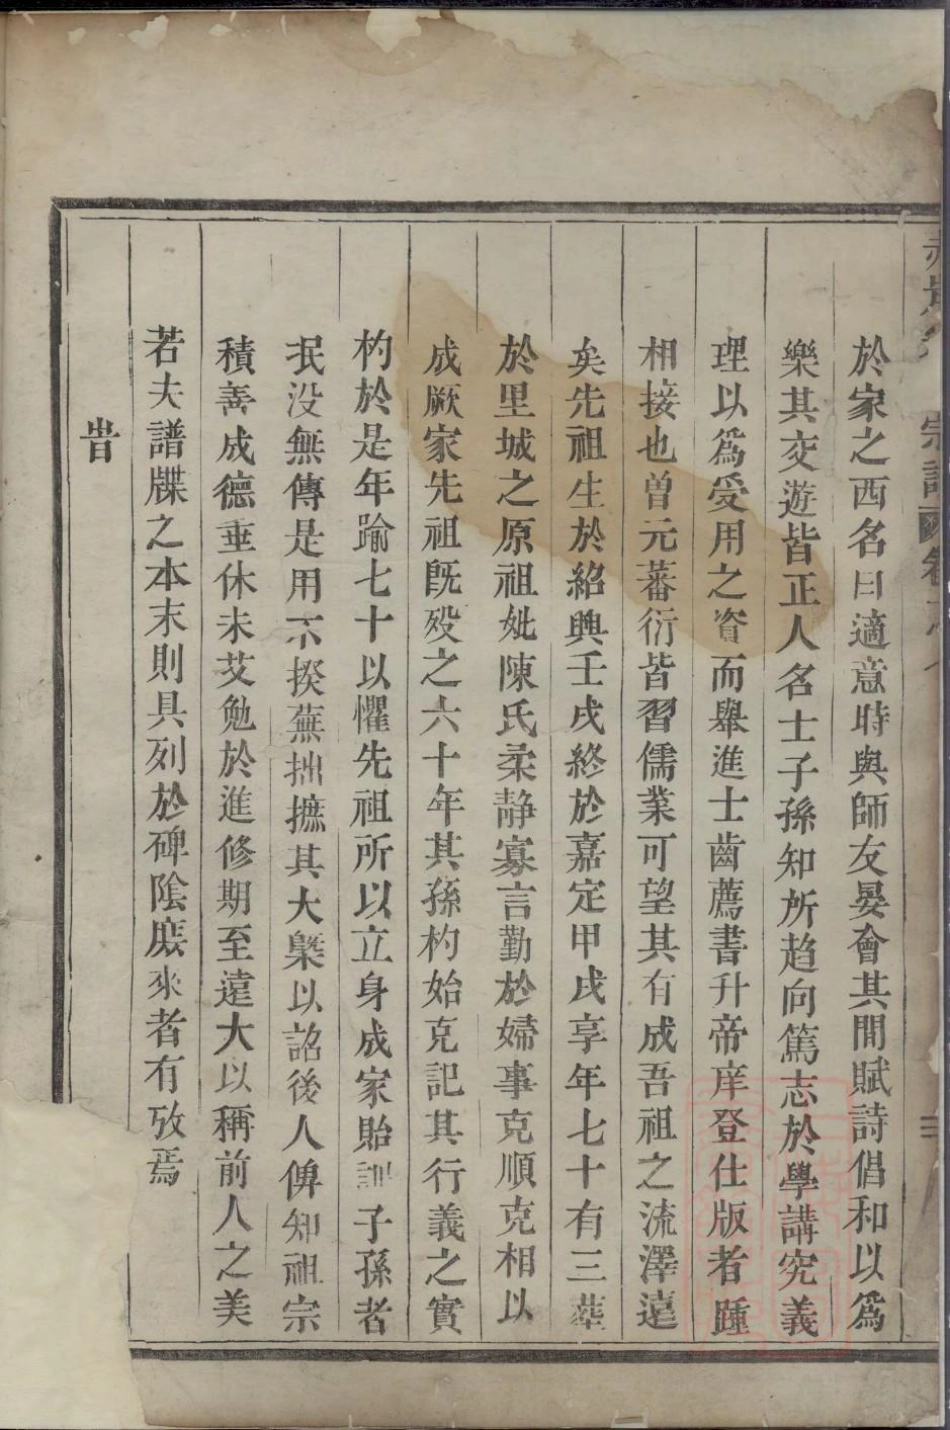 宗譜
於家之西名曰適意時與師友晏會其閒賦詩倡和以爲
樂其交遊皆正人名士子孫知所趋向篤志於學講究義
理以爲受用之資而舉進士齒薦書升帝庠登仕版者踵
相接也曽元蕃衍皆習儒業可望其有成吾祖之流澤遠
矣先祖生於紹興壬戌終於嘉定甲戌享年七十有三葬
於里城之原祖妣陳氏柔静寡言勤於婦事克順克相以
成厥家先祖既歿之六十年其孫杓始克記其行義之實
杓於是年踰七十以懼先祖所以立身成家貽訓子孫者
泯没無傳是用不揆蕪拙摭其大槩以詔後人俾知祖宗
積善成德垂休未艾勉於進修期至遠大以稱前人之美
若夫譜牒之本末則具列於碑陰庶來者有攷焉
旹